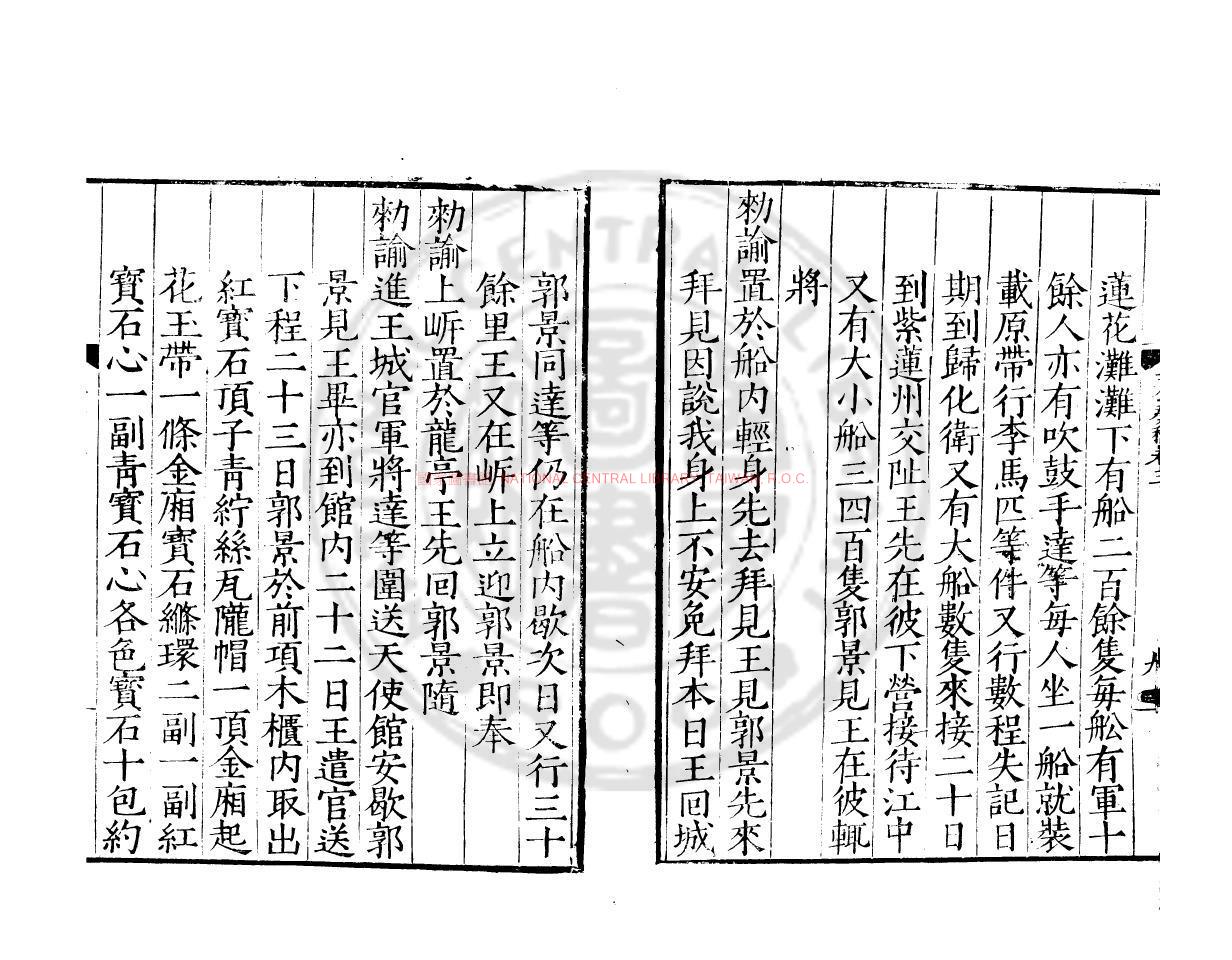 蓮花灘灘下有船二百餘隻每舩有軍十
餘人亦有吹鼓手達等每人坐一船就裝
載原帶行李馬匹等件又行數程失記日
期到歸化衛又有大船數隻來接二十日
到紫蓮州交阯王先在彼下營接待江中
又有大小船三四百隻郭景見王在彼輒
將
勑諭置於船內輕身先去拜見王見郭景先來
拜見因說我身上不安免拜本日王囘城
郭景同達等仍在船內歇次日又行三十
餘里王又在岍上立迎郭景即奉
勑諭上岍置於龍亭王先囘郭景隨
勑諭進王城官軍將達等圍送天使館安歇郭
景見王畢亦到館內二十二日王遣官送
下程二十三日郭景於前項木櫃內取出
紅寶石頂子青紵絲瓦隴帽一頂金廂起
花玉帶一條金廂寶石縧環二副一副紅
寶石心一副青寶石心各色寶石十包約
NATIONAL CENTRAL LIBRARY, TAIWAN, R.O.C.